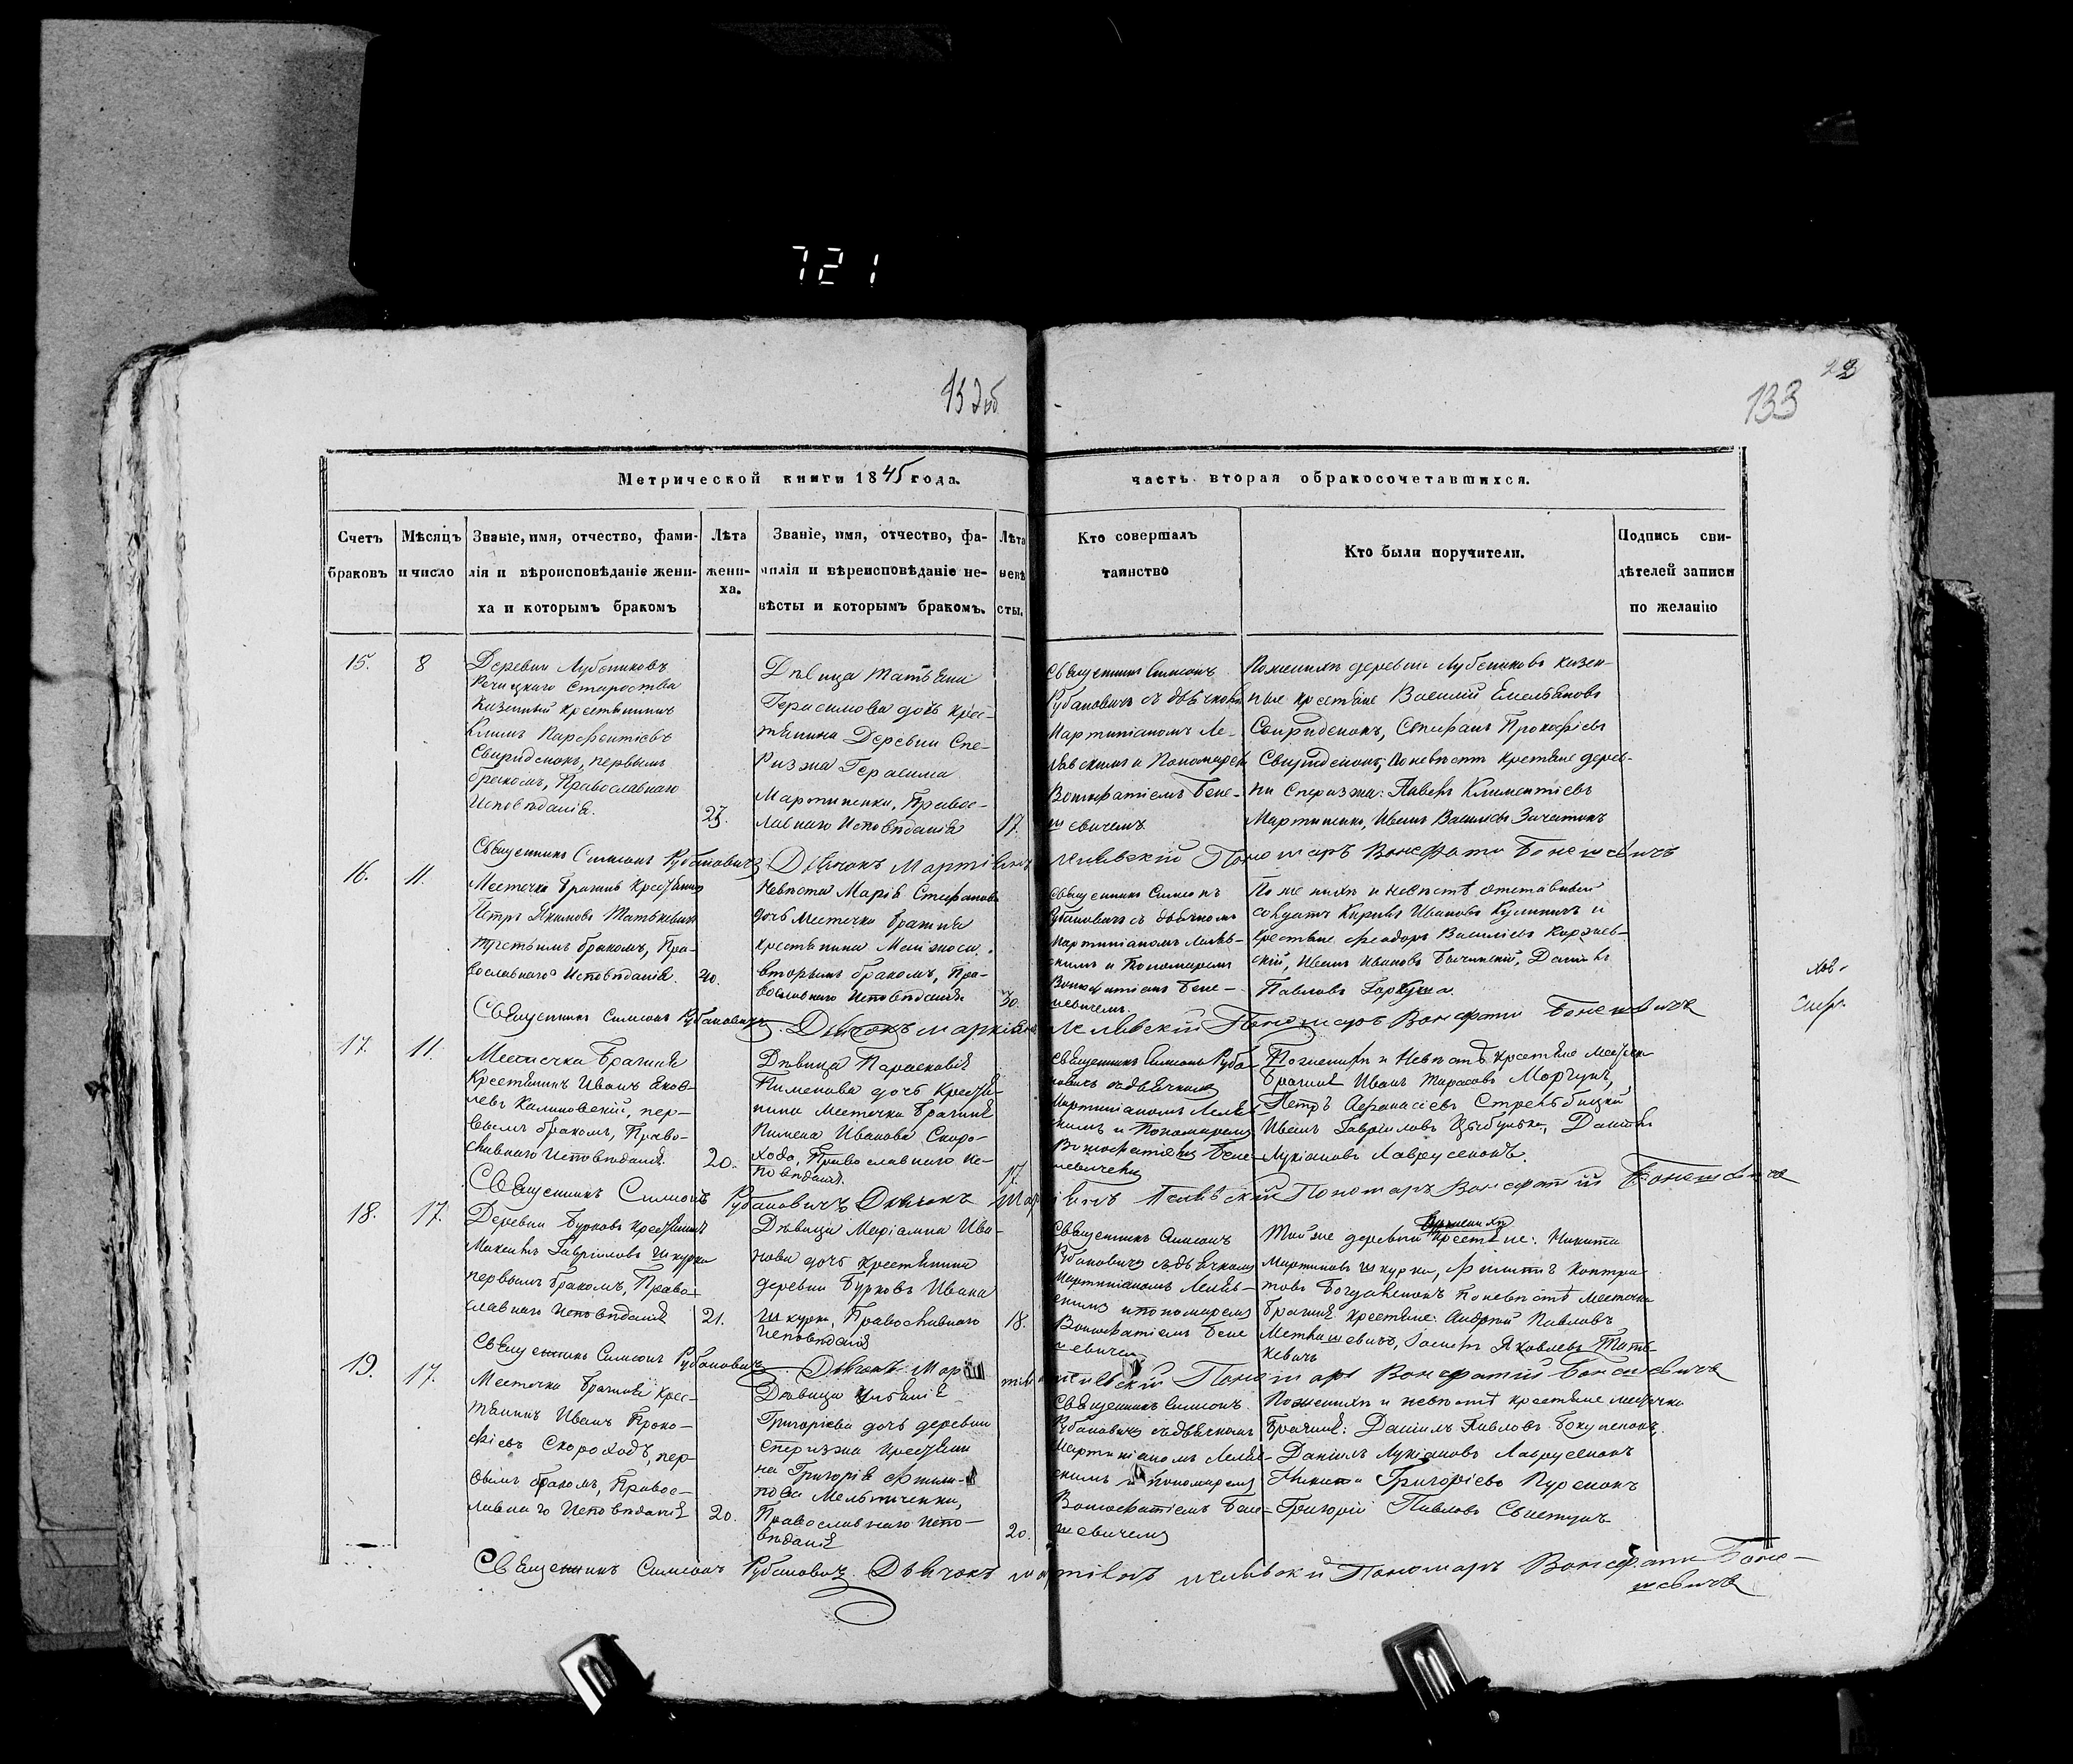 721
132об
23
133
Метрической книги 1845 года. часть вторая обракосочетавшихся.
Счетъ браковъ
Мѣсяцъ и число
Званіе, имя, отчество, фами-
лія и вѣроисповѣданіе жени-
ха и которымъ бракомъ
Лѣта
жени-
ха.
Званіе, имя, отчество, фа-
милія и вѣреисповѣданіе не-
вѣсты и которымъ бракомъ.
Лѣта
невѣ
сты.
Кто совершалъ
таинство
Кто были поручители.
Подпись сви-
дѣтелей записи
по желанію
15.
8
Деревни Лубениковъ
Речицкаго Староства
Казенный крестьянинъ
Климъ Парфентіевъ
Свириденокъ, первымъ
бракомъ, Православнаго
Исповѣданія.
Дѣвица Татьяна
Герасимова дочь крес-
тьянина Деревни Спе-
рижа Герасима
Мартиненки, Правос-
лавнаго Исповѣданія
17.
Священникъ Симеонъ
Рубановичъ съ дьячкомъ
Мартиніаномъ Ле-
нявскимъ и Пономаремъ
Вонифатіемъ Боне-
шевичемъ
По женихѣ деревни Лубениковъ казен-
ные крестьяне Василій Емельяновъ
Свириденокъ, Стефанъ Прокофіевъ
Свириденокъ, по невѣстѣ крестьяне дерев-
ни Сперижа: Павелъ Климентіевъ
Мартиненко, Иванъ Васильевъ
Священникъ Симеонъ Рубановичъ Дьячокъ Пономарь Вонифати Бонешевичъ
16.
11.
Местечка Брагиня Крестьянинъ
Петръ Якимовъ Татькевичъ
третьимъ бракомъ, Пра-
вославнаго Исповѣданія.
40.
Невѣста Марія Стефанова
дочь Местечка Брагиня
крестьянина
вторымъ бракомъ, Пра-
вославнаго Исповѣданія
30.
Священникъ Симеонъ
Рубановичъ съ дьячкомъ
Мартиніаномъ
скимъ и Пономаремъ
Вонифатіемъ Боне-
шевичемъ.
По женихѣ и невѣстѣ отставный
солдатъ Кирилъ Ивановъ и
крестьяне Феодоръ Васильевъ Коржев-
скій, Иванъ Ивановъ Данилъ
Павловъ
Священникъ Симеонъ Рубановичъ. Дьячокъ Пономарь Вонифати Бонешевичъ
17.
11.
Местечка Брагиня
Крестьянинъ Иванъ Яков-
левъ Калиновскій, пер-
вымъ бракомъ, Право-
славнаго Исповѣданія.
20.
Дѣвица Параскевія
Пименова дочь Крестья-
нина Местечка Брагиня
Пимена Иванова Скоро-
хода, Православнаго Ис-
повѣданія.
17.
Священникъ Симеонъ Руба-
новичъ съ дьячкомъ
Мартиніаномъ
скимъ и Пономаремъ
Вонифатіемъ Боне-
шевичемъ
По женихѣ и Невѣстѣ крестьяне Местечка
Брагиня Иванъ Тарасовъ Моргунъ,
Петръ Афанасіевъ Стрельбицкій
Иванъ Гавріиловъ Цыбулька, Данилъ
Лукіановъ Лаврусенокъ.
Священникъ Симеонъ Рубановичъ Дьячокъ Пономарь Вонифатій Бонешевичъ
18.
17.
Деревни Бурковъ Крестьянинъ
Максимъ Гавріиловъ Шкурка
первымъ бракомъ, Право-
славнаго Исповѣданія
21.
Дѣвица Маріамна Ива-
нова дочь крестьянина
деревни Бурковъ Ивана
Шкурки, Православнаго
Исповѣданія
18.
Священникъ Симеонъ
Рубановичъ съ дьячкомъ
Мартиніаномъ
скимъ и пономаремъ
Вонифатіемъ Боне
шевичемъ
Той же деревни крестьяне: Никита
Мартиновъ Шкурка, Филипъ Кондра
товъ по невѣстѣ местечка
Брагиня Крестьяне: Андрей Павловъ
Яковлевъ Тать-
кевичъ
Священникъ Симеонъ Рубановичъ. Дьячокъ Пономарь Вонифатій Бонешевичъ
19.
17.
Местечка Брагиня Крес-
тьянинъ Иванъ Проко-
фіевъ Скороходъ, пер-
вымъ бракомъ, Правос-
лавнаго Исповѣданія
20.
Дѣвица Уліянія
Григоріева дочь деревни
Сперижа Крестьяни
на Григорія Филип-
пова Мельниченки,
Православнаго Испо-
вѣданія
20.
Священникъ Симеонъ
Рубановичъ съ дьячкомъ
Мартиніаномъ
скимъ и пономаремъ
Вонифатіемъ Боне-
шевичемъ
По женихѣ и невѣстѣ крестьяне местечка
Брагиня: Данилъ Павловъ
Данилъ Лукіановъ Лаврусенокъ
Никита Григоріевъ Куренокъ
Григорій Павловъ Свистунъ
Священникъ Симеонъ Рубановичъ Дьячокъ Пономарь Вонифати Боне-
шевичъ